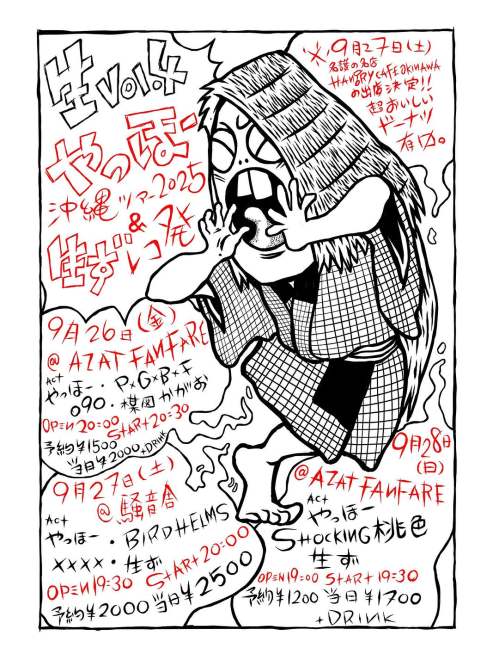 生 VOl.4
やっほー
沖縄ツアー2025
&
生ずレコ発
※9月27日(土)
名護の名店
HANGRY CAFE OKINAWA
の出店決定!!
超おいしい
ドーナツ
有り。
9月26日(金)
@ AZAT FANFARE
Act
やっほー・P×G×B×F
090・楳図かがお
OPEN 20:00
StARt 20:30
予約¥1500
当日¥2000+DRINK
9月27日(土)
@騒音舎
Act
やっほー・BIRDHELMS
××××・生ず
OPEN 19:30 StARt 20:00
予約¥2000 当日¥2500
9月28日
(日)
@AZAT FANFARE
Act
やっほー
SHOCKING桃色
生ず
OPEN 19:00 StARt 19:30
予約¥1200 当日¥1700
+DRINK